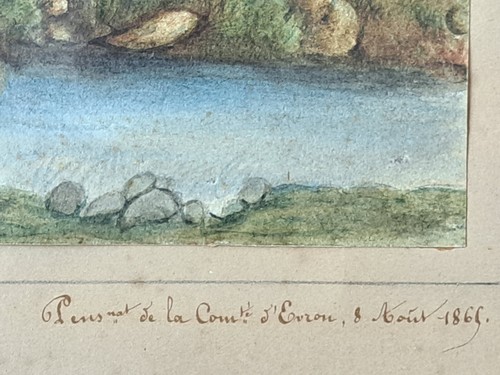 Pens.nat de la Comté d'Evron, 8 Août 1865.